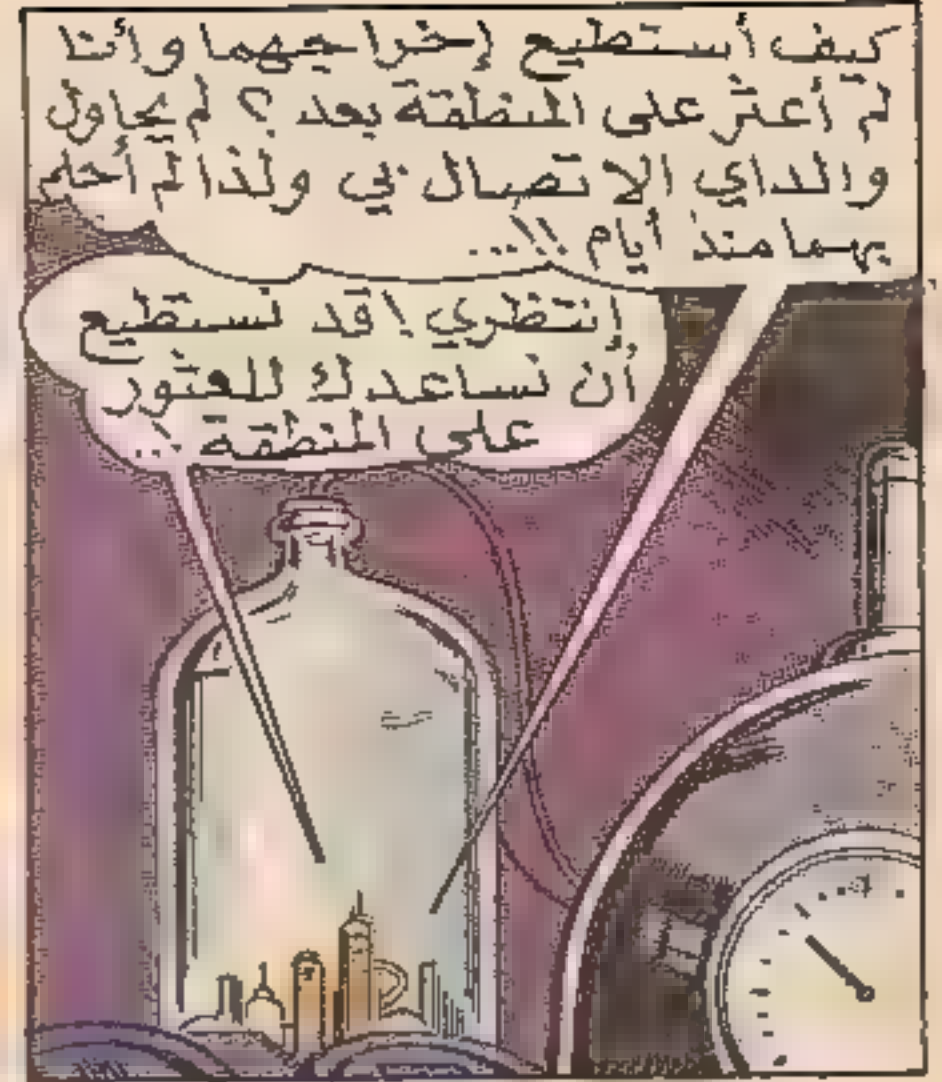 كيف أستطيع إخراجهما وأنا
لم أعثر على المنطقة بعد ؟ لم يحاول
والداي الاتصال بي ولذا لم أحلم
بهما منذ أيام !!...
إنتظري ! قد نستطيع
أن نساعدك للعثور
على المنطقة ...